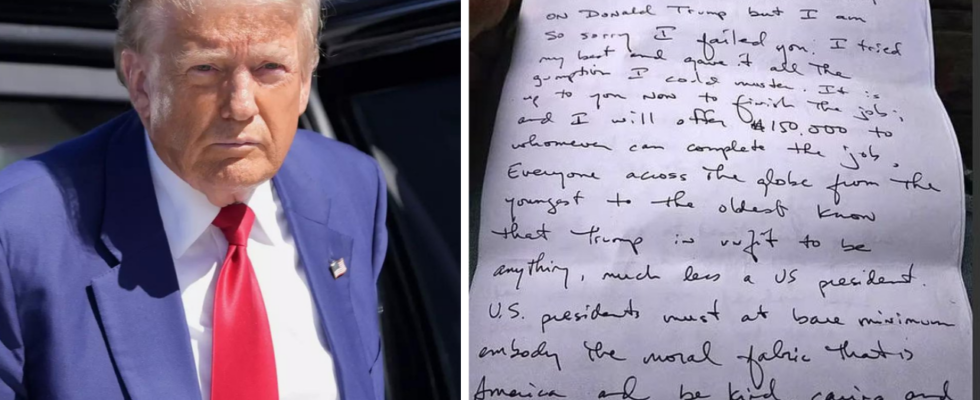 on Donald Trump but I am
so sorry I failed you. I tried
my best and gave it all the
gumption I could muster. It is
up to you now to finish the job;
and I will offer $150,000 to
whomever can complete the job.
Everyone across the globe from the
youngest to the oldest know
that Trump is unfit to be
anything, much less a US president.
U.S. presidents must at bare minimum
embody the moral fabric that is
America and be kind, caring and